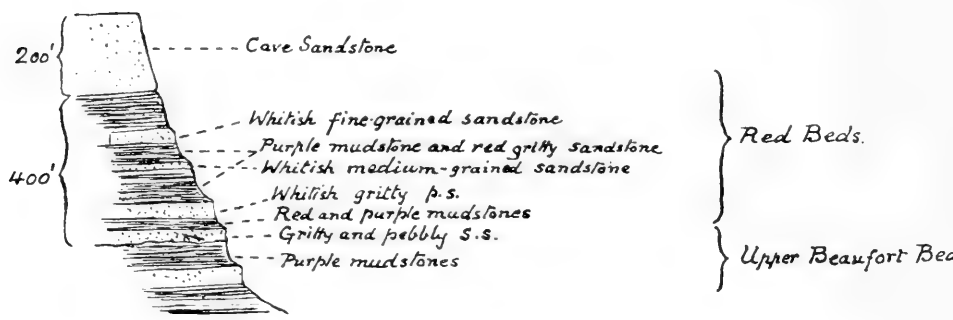 200'
Cave Sandstone
Whitish fine-grained sandstone
Purple mudstone and red gritty sandstone
Whitish medium-grained sandstone
400'
Whitish gritty p.s.
Red and purple mudstones
Gritty and pebbly s.s.
Purple mudstones
Red Beds.
Upper Beaufort Bed